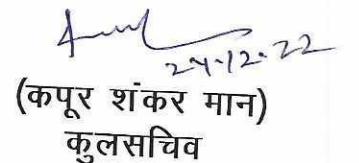 24.12.22
(कपूर शंकर मान)
कुलसचिव